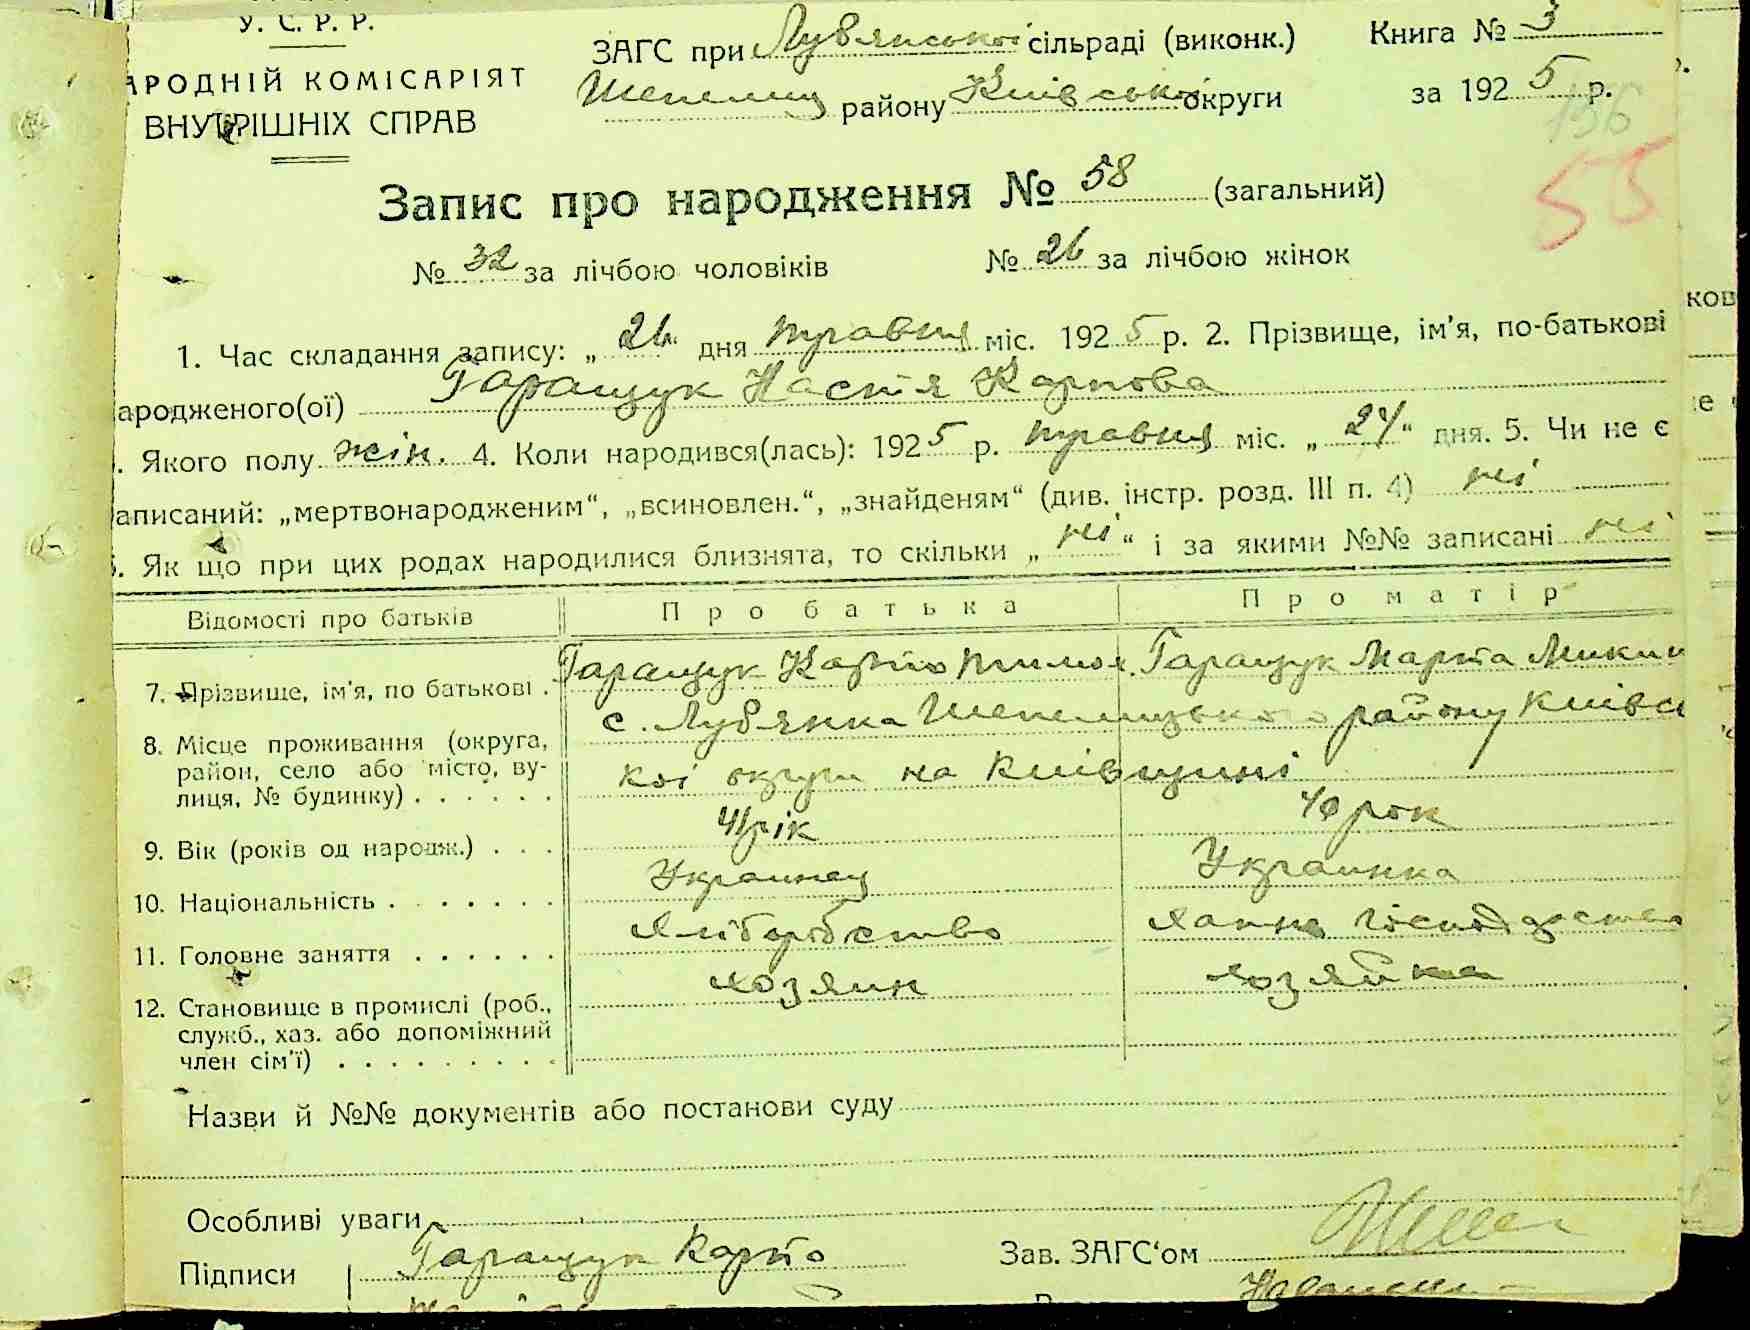 У. С. Р. Р.
АРОДНІЙ КОМІСАРІЯТ
ВНУТРІШНІХ СПРАВ
ЗАГС при Лубянської сільраді (виконк.)
Шепелиц району Київської округи
Книга № 3
за 1925 р.
156
55
Запис про народження № 58 (загальний)
№ 32 за лічбою чоловіків № 26 за лічбою жінок
1. Час складання запису: „ 26 дня травня міс. 1925 р. 2. Прізвище, ім’я, по-батькові
ародженого(ої) Гаращук Настя Карпова
. Якого полу жін. 4. Коли народився(лась): 1925 р. травня міс. „ 24 “ дня. 5. Чи не є
аписаний: „мертвонародженим“, „всиновлен.“, „знайденям“ (див. інстр. розд. III п. 4) ні
. Як що при цих родах народилися близнята, то скільки „ ні “ і за якими №№ записані ні
Відомості про батьків Про батька Про матір
7. Прізвище, ім’я, по батькові . Гаращук Карпо Тимох. Гаращук Марта Мики
8. Місце проживання (округа, район, село або місто, вулиця, № будинку) . . . . . . с. Лубянка Шепелицького району Київсь
кої округи на Київщині
9. Вік (років од народж.) . . . 41 рік 40 рок
10. Національність . . . . . . . Украинец Украинка
11. Головне заняття . . . . . . Хліборобство хатнє господарство
12. Становище в промислі (роб., служб., хаз. або допоміжний член сім’ї) . . . . . . . . . хозяин хозяйка
Назви й №№ документів або постанови суду
Особливі уваги
Підписи Гаращук Карпо Зав. ЗАГС‘ом